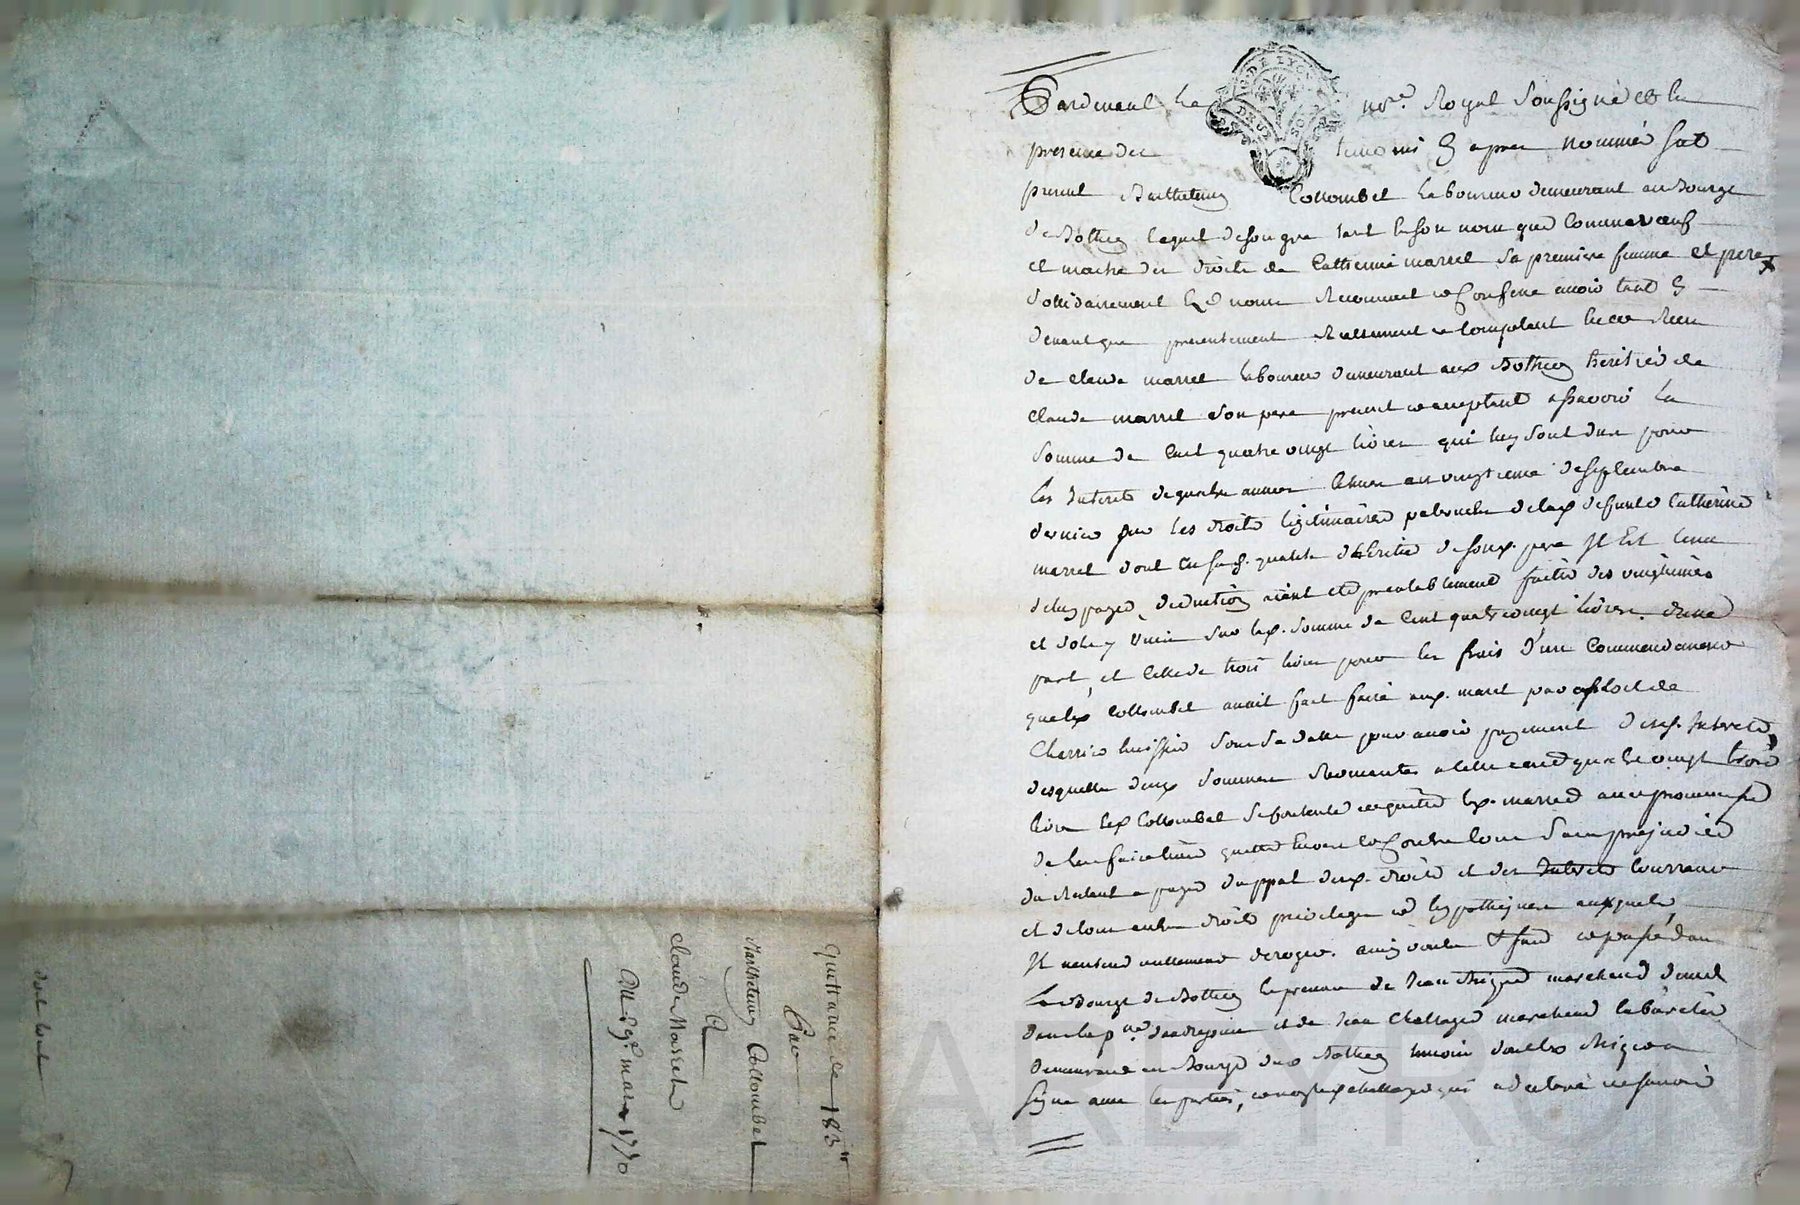 Pardevant Le no.re Royal Soussigné et en
presence des temoins cy apres nommés fut
present Barthelemy Collombet laboureur demeurant au Bourge
de Bothey lequel de son gré tant en son nom que comme
et maitre des droits de Catherine marrel sa premiere femme et pere
solidairement et confesse avoir tant cy
devant que presentement reellement et comptant receu
de Claude marrel laboureur demeurant aux Bothey heritier de
Claude marrel son pere present et acceptant assavoir La
somme de Cent quatre vingt livres qui luy sont dues pour
les Interets de quatre années echues au vingtieme de septembre
dernier sur les droits legitimaires paternels de lad defunte Catherine
marrel dont en sad. qualité d'heritier de sond. pere Il Est tenu
de luy payer, deduction aiant eté prealablement faitte des vingtiemes
et sols y sur lad. somme de Cent quatre vingt livres d'une
part, et celle de trois livres pour les frais d'un Commandement
que led Collombet avait fait faire aud. marrel par exploit de
Cherrier huissier sous sa datte pour avoir payement desd. Interets,
desquelles deux sommes revenantes a celle cent quatre vingt trois
livres led Collombet se contente et quitte led. marrel avec promesse
de l'en faire tenir quitte envers et Contre tous sans prejudice
du restant a payer du ppal desd. droits et des Interets Courrants
et de tous autres droits privileges et hypotheques auxquels
Il n'entend nullement deroger. ainsy voulu fait et passé dans
Le Bourge de Bothey en presence de Jean marchand
dans la p.sse et de Jean Challaye marchand cabaretier
demeurant au Bourge dud Bothey temoins
signé avec les parties, et non led Challaye qui a declaré ne savoir
Quittance de 183 tt
Par
Barthelemy Collombet
A
Claude Marrel
du 9e mars 1770